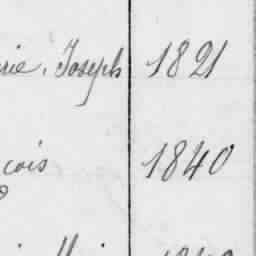 rie, Joseph 1821
çois 1840